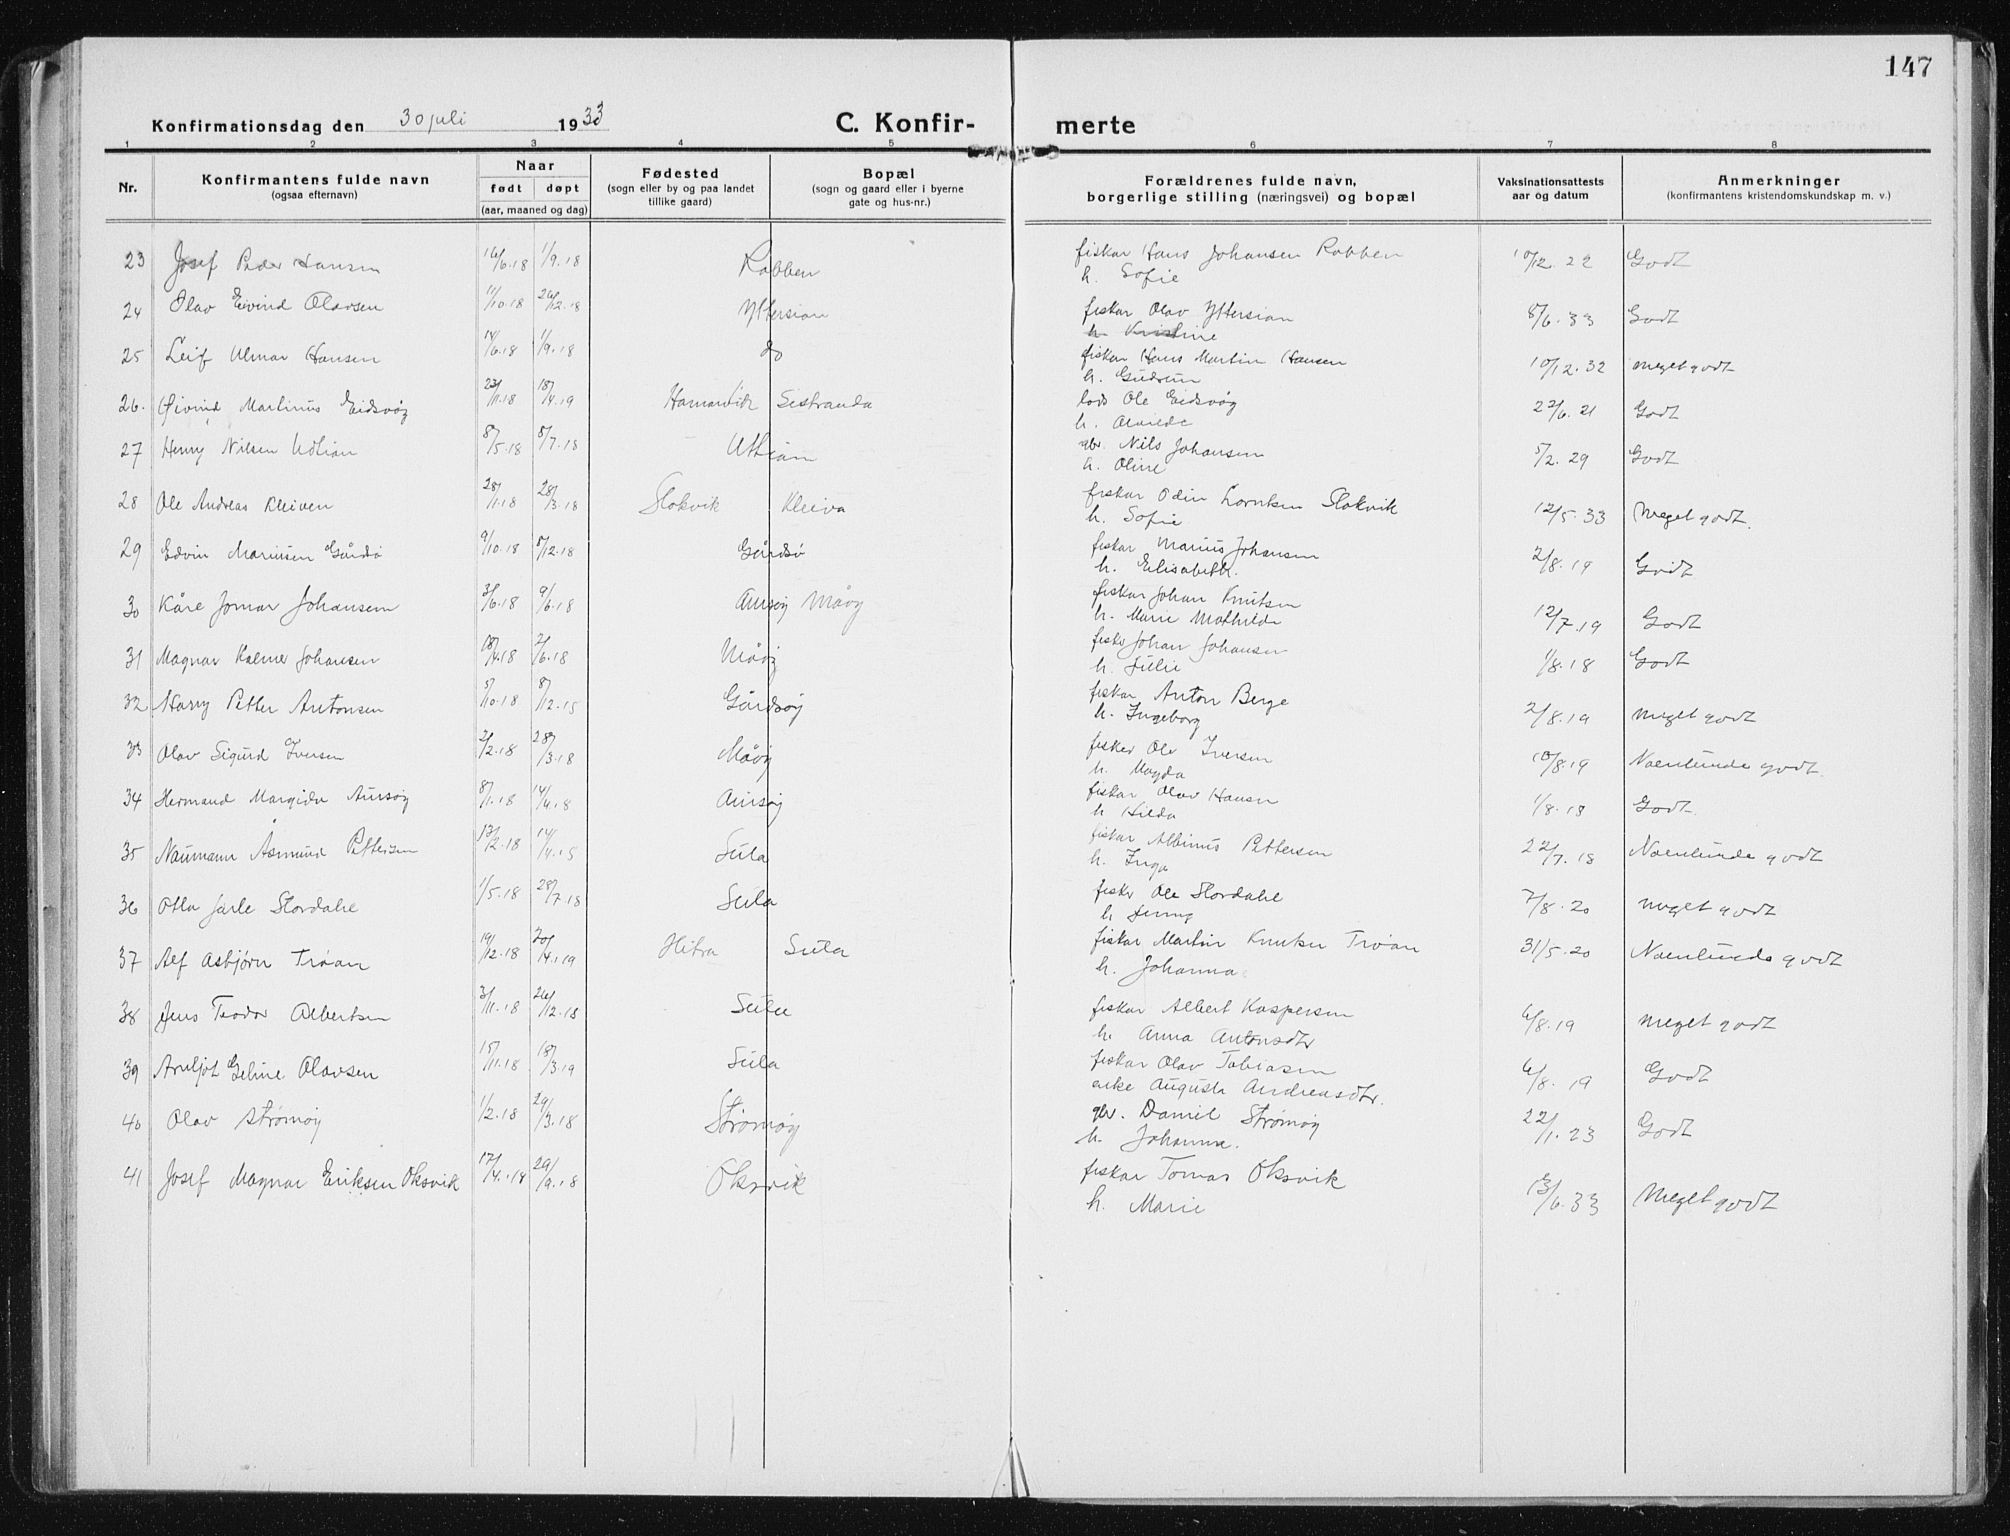 147
Konfirmationsdag den 30 juli 1933 C. Konfir- merte
1 2 3 4 5 6 7 8
Nr. Konfirmantens fulde navn (ogsaa efternavn) Naar født døpt (aar, maaned og dag) Fødested (sogn eller by og paa landet tillike gaard) Bopæl (sogn og gaard eller i byerne gate og hus-nr.) Forældrenes fulde navn, borgerlige stilling (næringsvei) og bopæl Vaksinationsattests aar og datum Anmerkninger (konfirmantens kristendomskundskap m. v.)
23 Josef Peder Hansen 16/6.18 1/9.18 Robben fiskar Hans Johansen Robben 10/12.22 Godt
h. Sofie
24 Olav Eivind Olavsen 11/10.18 26/12.18 Yttersian fiskar Olav Yttersian 8/6.33 Godt
h. Kristine
25 Leif Ulmar Hansen 14/6.18 1/9.18 do fiskar Hans Martin Hansen 10/12.32 meget godt
h. Gudrun
26. Øivind Martinus Eidsvåg 23/11.18 18/4.19 Hamarvik Sistranda los Ole Eidsvåg 22/6.21 Godt
h.
27 Henry Nilsen Utsian 8/5.18 8/7.18 Uttian gbr. Nils Johansen 5/2.29 Godt
h. Oline
28 Ole Andreas Kleiven 28/11.18 28/3.18 Slokvik Kleiva fiskar Odin Slokvik 12/5.33 Meget godt.
h. Sofie
29 Edvin Mariusen Gurdsø 9/10.18 8/12.18 Gurdsø fiskar Marius Johansen 2/8.19 Godt
h. Elisabeth.
30 Kåre Jomar Johansen 3/6.18 9/6.18 Aursøy Måøy fiskar Johan Knutsen 12/7.19 Godt
h. Marie Mathilde
31 Magnar Kalmer Johansen 18/4.18 2/6.18 Måøy fiskar Johan Johansen 1/8.18 Godt
h. Julie
32 Harry Petter Antonsen 5/10.18 8/12.18 Gurdsøy fiskar Anton Berge 2/8.19 meget godt
h. Ingeborg
33 Olav Sigurd Iversen 2/2.18 28/3.18 Måøy fisker Ole Iversen 10/8.19 Noenlunde godt.
h. Magda
34 Hermand Margido Aursøy 8/1.18 14/4.18 Aursøy fiskar Olav Hansen 1/8.18 Godt.
h. Hilda
35 Naumann Asmund Pettersen 13/2.18 14/4.18 Sula fiskar Albinus Pettersen 22/7.18 Noenlunde godt
h. Inga
36 Otto Jarle Slordahl 1/5.18 28/7.18 Sula fiskar Ole Slordahl 7/8.20 meget godt
h. Jenny
37 Alf Asbjørn Trøan 19/12.18 20/4.19 Hitra Sula fiskar Martin Knutsen Trøan 31/5.20 Noenlunde godt
h. Johanna
38 Jens Teodor Albertsen 3/11.18 26/12.18 Sula fiskar Albert Kaspersen 6/8.19 meget godt
h. Anna Antonsdtr
39 Arnljot Geline Olavsen 15/11.18 18/3.19 Sula fiskar Olav Tobiasen 6/8.19 Godt
enke Augusta Andreasdtr.
40 Olav Strømøy 1/2.18 29/3.18 Strømøy gbr. Daniel Strømøy 22/1.23 Godt
h. Johanna.
41 Josef Magnar Eriksen Oksvik 17/4.18 29/9.18 Oksvik fiskar Tomas Oksvik 13/6.33 Meget godt
h. Marie